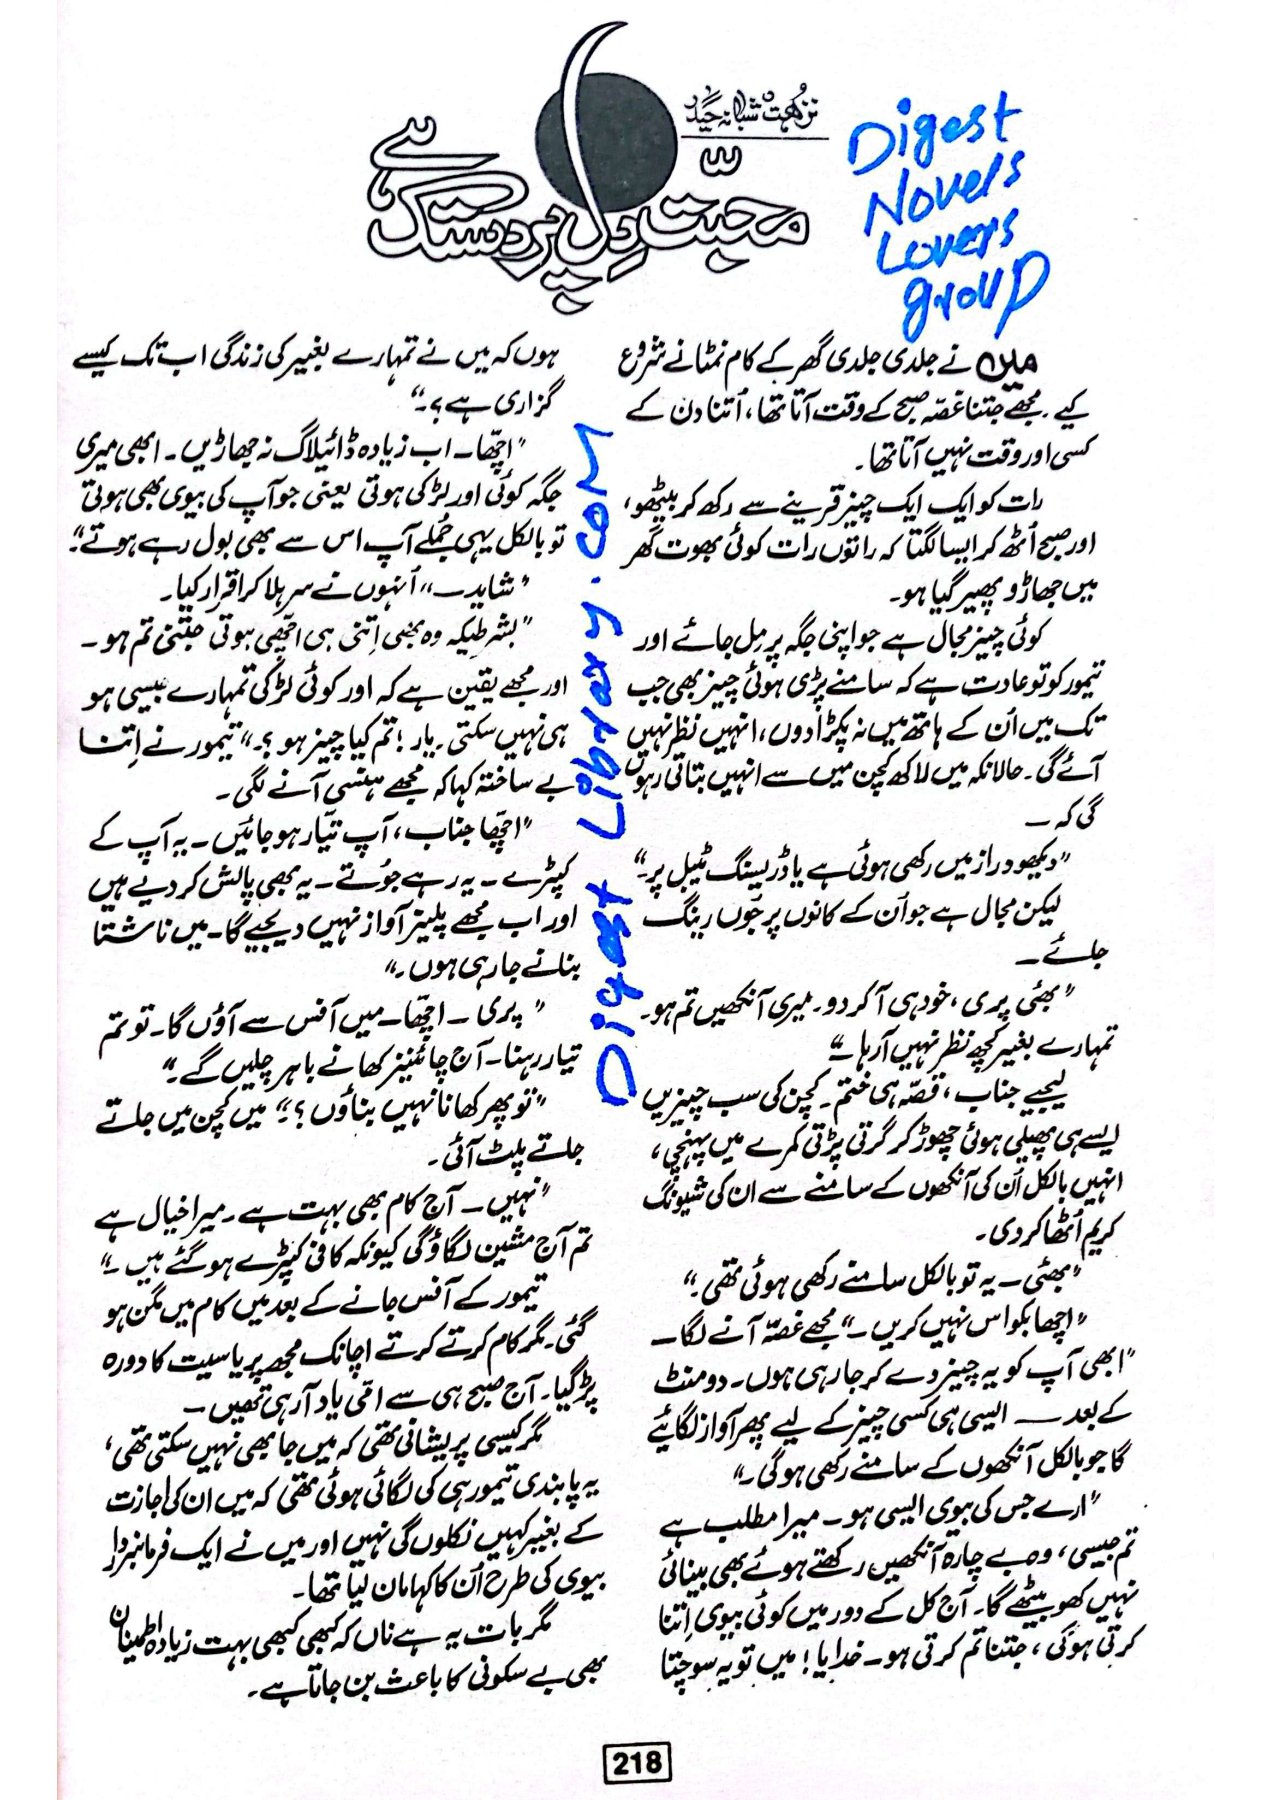 نزہت شبانہ حیدر
محبّت دِل پر دستک ہے
Digest
Novels
Lovers
group
میں نے جلدی جلدی گھر کے کام نمٹانے شروع
کیے۔ مجھے جتنا غصّہ صبح کے وقت آتا تھا، اُتنا دن کے
کسی اور وقت نہیں آتا تھا۔
رات کو ایک ایک چیز قرینے سے رکھ کر بیٹھو،
اور صبح اُٹھ کر ایسا لگتا کہ راتوں رات کوئی بھوت گھر
میں جھاڑو پھیر گیا ہو۔
کوئی چیز مجال ہے جو اپنی جگہ پر مِل جائے اور
تیمور کو تو عادت ہے کہ سامنے پڑی ہوئی چیز بھی جب
تک میں اُن کے ہاتھ میں نہ پکڑا دوں، انہیں نظر نہیں
آئے گی۔ حالانکہ میں لاکھ کچن میں سے انہیں بتاتی رہوں
گی کہ —
”دیکھو دراز میں رکھی ہوئی ہے یا ڈریسنگ ٹیبل پر۔“
لیکن مجال ہے جو اُن کے کانوں پر جُوں رینگ
جائے —
”بھئی پری، خود ہی آ کر دو۔ میری آنکھیں تم ہو۔
تمہارے بغیر کچھ نظر نہیں آ رہا —“
لیجیے جناب، قصّہ ہی ختم۔ کچن کی سب چیزیں
ایسے ہی پھیلی ہوئی چھوڑ کر گرتی پڑتی کمرے میں پہنچی،
انہیں بالکل اُن کی آنکھوں کے سامنے سے ان کی شیونگ
کریم اُٹھا کر دی۔
”بھئی — یہ تو بالکل سامنے رکھی ہوئی تھی۔“
”اچھا بکواس نہیں کریں —“ مجھے غصّہ آنے لگا —
”ابھی آپ کو یہ چیز دے کر جا رہی ہوں۔ دو منٹ
کے بعد — ایسی ہی کسی چیز کے لیے پھر آواز لگائیے
گا جو بالکل آنکھوں کے سامنے رکھی ہوگی۔“
”ارے جس کی بیوی ایسی ہو — میرا مطلب ہے
تم جیسی، وہ بے چارہ آنکھیں رکھتے ہوئے بھی بینائی
نہیں کھو بیٹھے گا۔ آج کل کے دور میں کوئی بیوی اِتنا
کرتی ہوگی، جتنا تم کرتی ہو — خدایا! میں تو یہ سوچتا
ہوں کہ میں نے تمہارے بغیر کی زندگی اب تک کیسے
گزاری ہے؟۔“
”اچّھا — اب زیادہ ڈائیلاگ نہ جھاڑیں۔ ابھی میری
جگہ کوئی اور لڑکی ہوتی یعنی جو آپ کی بیوی بھی ہوتی
تو بالکل یہی جُملے آپ اس سے بھی بول رہے ہوتے۔“
”شاید —“ اُنہوں نے سر ہلا کر اقرار کیا۔
”بشرطیکہ وہ بھی اِتنی ہی اچّھی ہوتی جتنی تم ہو —
اور مجھے یقین ہے کہ اور کوئی لڑکی تمہارے جیسی ہو
ہی نہیں سکتی۔ یار! تم کیا چیز ہو؟۔“ تیمور نے اِتنا
بے ساختہ کہا کہ مجھے ہنسی آنے لگی۔
”اچّھا جناب، آپ تیّار ہو جائیں — یہ آپ کے
کپڑے — یہ رہے جُوتے — یہ بھی پالش کر دیے ہیں
اور اب مجھے پلیز آواز نہیں دیجیے گا۔ میں ناشتا
بنانے جا رہی ہوں۔“
”پری — اچّھا — میں آفس سے آؤں گا۔ تو تم
تیار رہنا۔ آج چائنیز کھانے باہر چلیں گے۔“
”تو پھر کھانا نہیں بناؤں؟۔“ میں کچن میں جاتے
جاتے پلٹ آئی۔
”نہیں — آج کام بھی بہت ہے۔ میرا خیال ہے
تم آج مشین لگاؤ گی کیونکہ کافی کپڑے ہو گئے ہیں۔“
تیمور کے آفس جانے کے بعد میں کام میں مگن ہو
گئی۔ مگر کام کرتے کرتے اچانک مجھ پر یاسیت کا دورہ
پڑ گیا۔ آج صبح ہی سے امّی یاد آ رہی تھیں —
مگر کیسی پریشانی تھی کہ میں جا بھی نہیں سکتی تھی،
یہ پابندی تیمور ہی کی لگائی ہوئی تھی کہ میں ان کی اجازت
کے بغیر کہیں نکلوں گی نہیں اور میں نے ایک فرمانبردار
بیوی کی طرح اُن کا کہا مان لیا تھا۔
مگر بات یہ ہے ناں کہ کبھی کبھی بہت زیادہ اطمینان
بھی بے سکونی کا باعث بن جاتا ہے۔
Digest Library.com
218